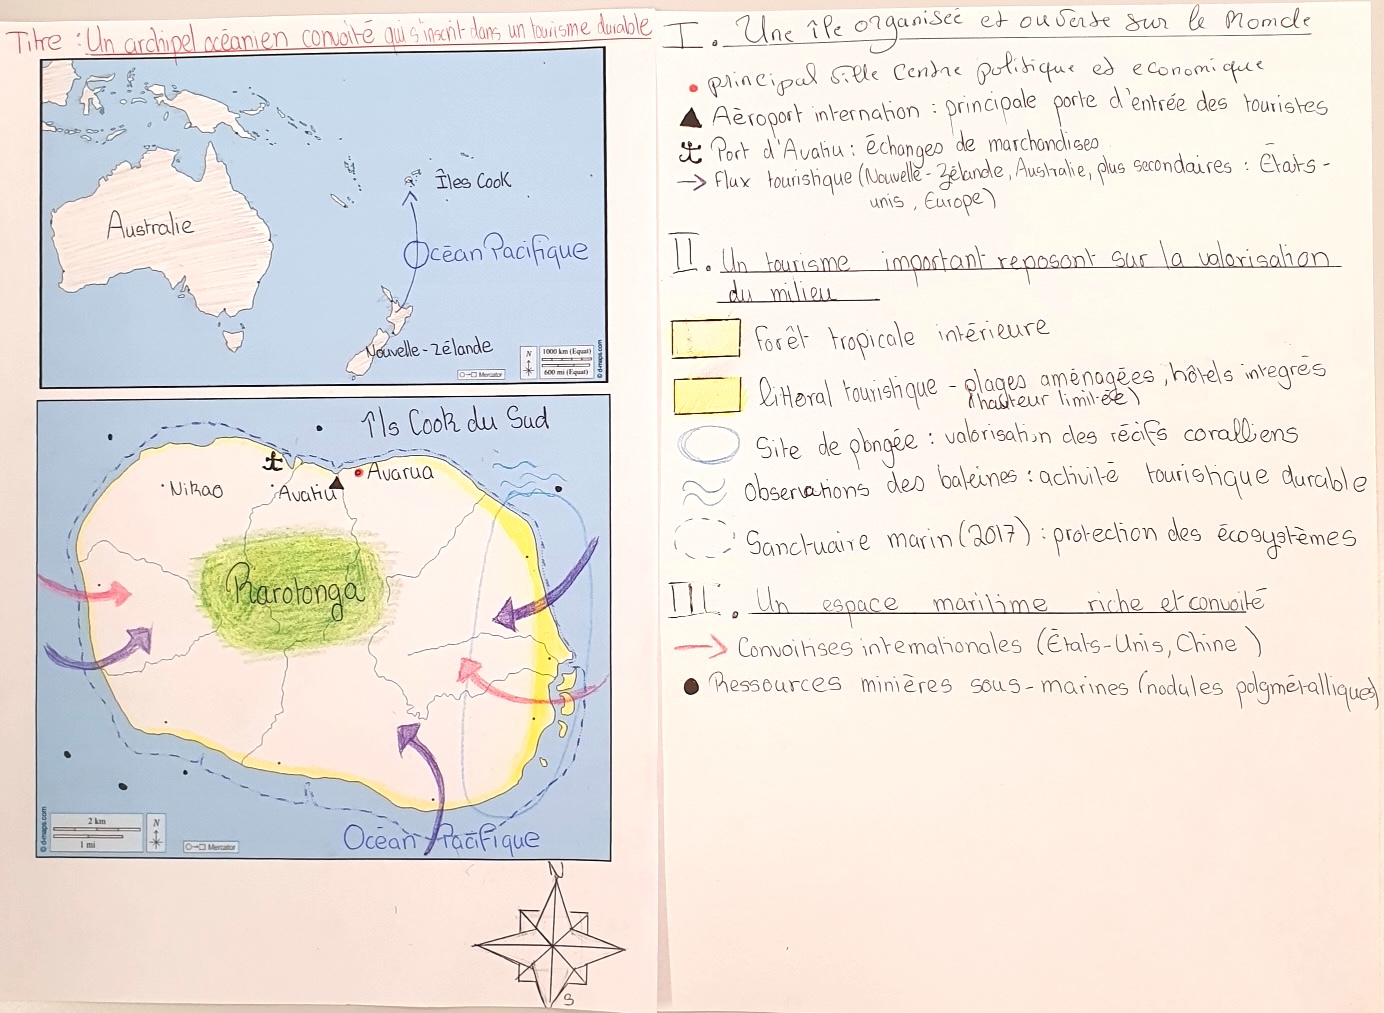 Titre : Un archipel océanien convoité qui s'inscrit dans un tourisme durable
Îles Cook
Australie
Océan Pacifique
Nouvelle-Zélande
N
1000 km (Equat)
600 mi (Equat)
Mercator
© d-maps.com
Îls Cook du Sud
Avarua
Nikao
Avatiu
Rarotonga
2 km
1 mi
N
Mercator
© d-maps.com
Océan Pacifique
N
S
I. Une île organisée et ouverte sur le Monde
principal ville Centre politique et economique
Aèroport internation : principale porte d'entrée des touristes
Port d'Avatiu : échanges de marchandises
Flux touristique (Nouvelle-Zélande, Australie, plus secondaires : États-
unis, Europe)
II. Un tourisme important reposant sur la valorisation
du milieu
Forêt tropicale intérieure
littoral touristique - plages aménagées, hôtels integrés
(hauteur limitée)
Site de plongée : valorisation des récifs coralliens
Observations des baleines : activité touristique durable
Sanctuaire marin (2017) : protection des écosystèmes
III. Un espace maritime riche et convoité
Convoitises internationales (États-Unis, Chine)
Ressources minières sous-marines (nodules polymétalliques)